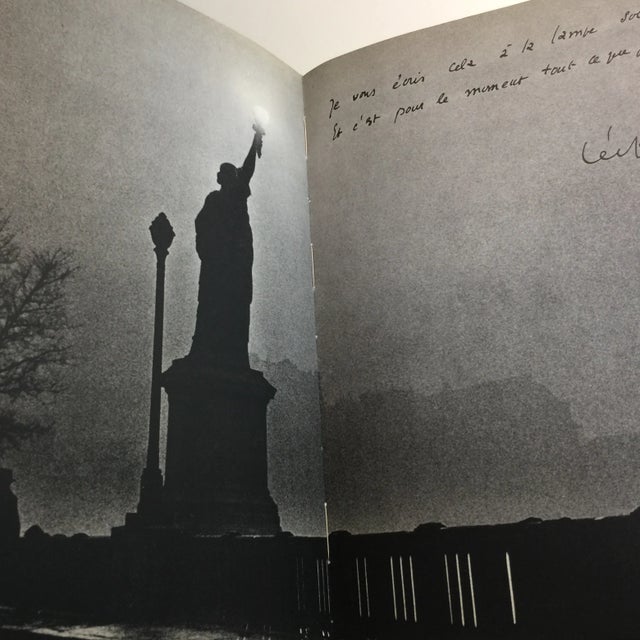 Je vous écris cela à la lampe
Et c'est pour le moment tout ce que